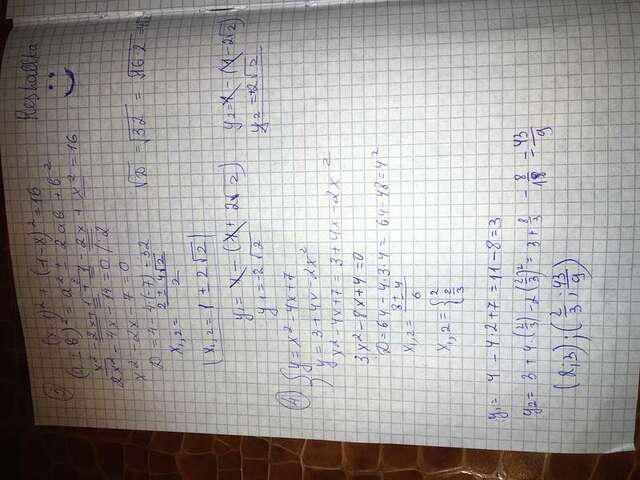 Reshallka
(x-1)² + (1-x)² = 16
(a±b)² = a² ± 2ab + b²
x² - 2x + 1 + 1 - 2x + x² = 16
2x² - 4x - 14 = 0 / 2
x² - 2x - 7 = 0
D = 4 - 4·(-7) = 32 √D = √32 = √16·2 = 4√2
x₁,₂ = (2 ± 4√2)/2
x₁,₂ = 1 ± 2√2
y₁ = 1 - (1 + 2√2) y₂ = 1 - (1 - 2√2)
y₁ = -2√2 y₂ = +2√2
4) { y = x² - 4x + 7
y = 3 + 4x - 2x²
x² - 4x + 7 = 3 + 4x - 2x²
3x² - 8x + 4 = 0
D = 64 - 4·3·4 = 64 - 48 = 4²
x₁,₂ = (8 ± 4)/6
x₁,₂ = { 2
2/3
y₁ = 4 - 4·2 + 7 = 11 - 8 = 3
y₂ = 3 + 4·(2/3) - 2(2/3)² = 3 + 8/3 - 8/9 = 43/9
(2;3); (2/3; 43/9)